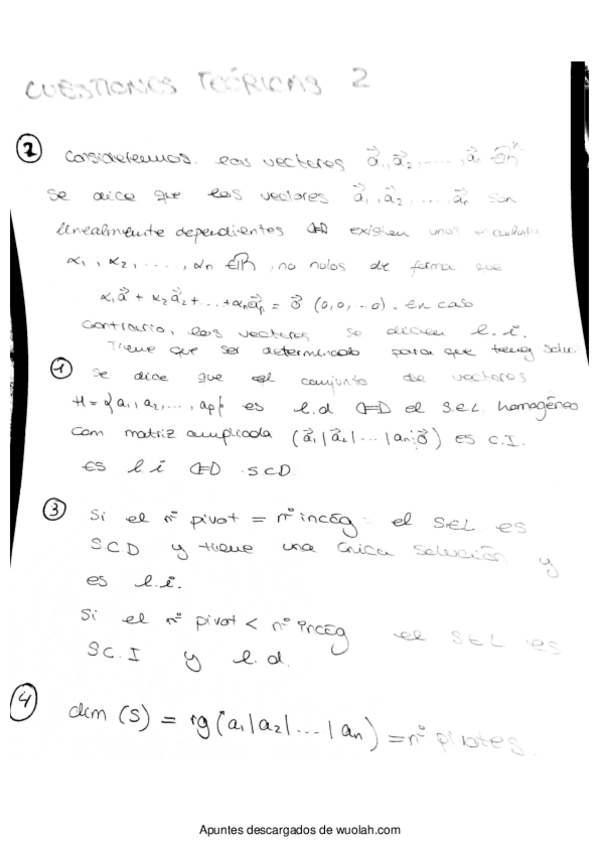 CUESTIONES TEÓRICAS 2
② Consideremos los vectores a⃗₁, a⃗₂, ..., a⃗
se dice que los vectores a⃗₁, a⃗₂, ... a⃗ₙ son
linealmente dependientes ⇔ existen unos
α₁, α₂, ..., αₙ ∈ ℝ, no nulos de forma que
α₁a⃗ + α₂a⃗₂ + ... + αₙa⃗ₙ = 0⃗ (0,0,..0). En caso
contrario, los vectores se dicen l.i.
Tiene que ser determinado para que tenga
① Se dice que el conjunto de vectores
H = {a₁, a₂, ..., aₚ} es l.d ⇔ el S.E.L. homogéneo
con matriz ampliada (a⃗₁|a⃗₂|...|aₙ:0⃗) es C.I.
es l.i ⇔ SCD
③ Si el nº pivot = nº incóg el SEL es
SCD y tiene una única solución y
es l.i.
Si el nº pivot < nº incóg el SEL es
SC.I y l.d.
④ dim (S) = rg (a₁|a₂|...|aₙ) = nº pivotes.
Apuntes descargados de wuolah.com